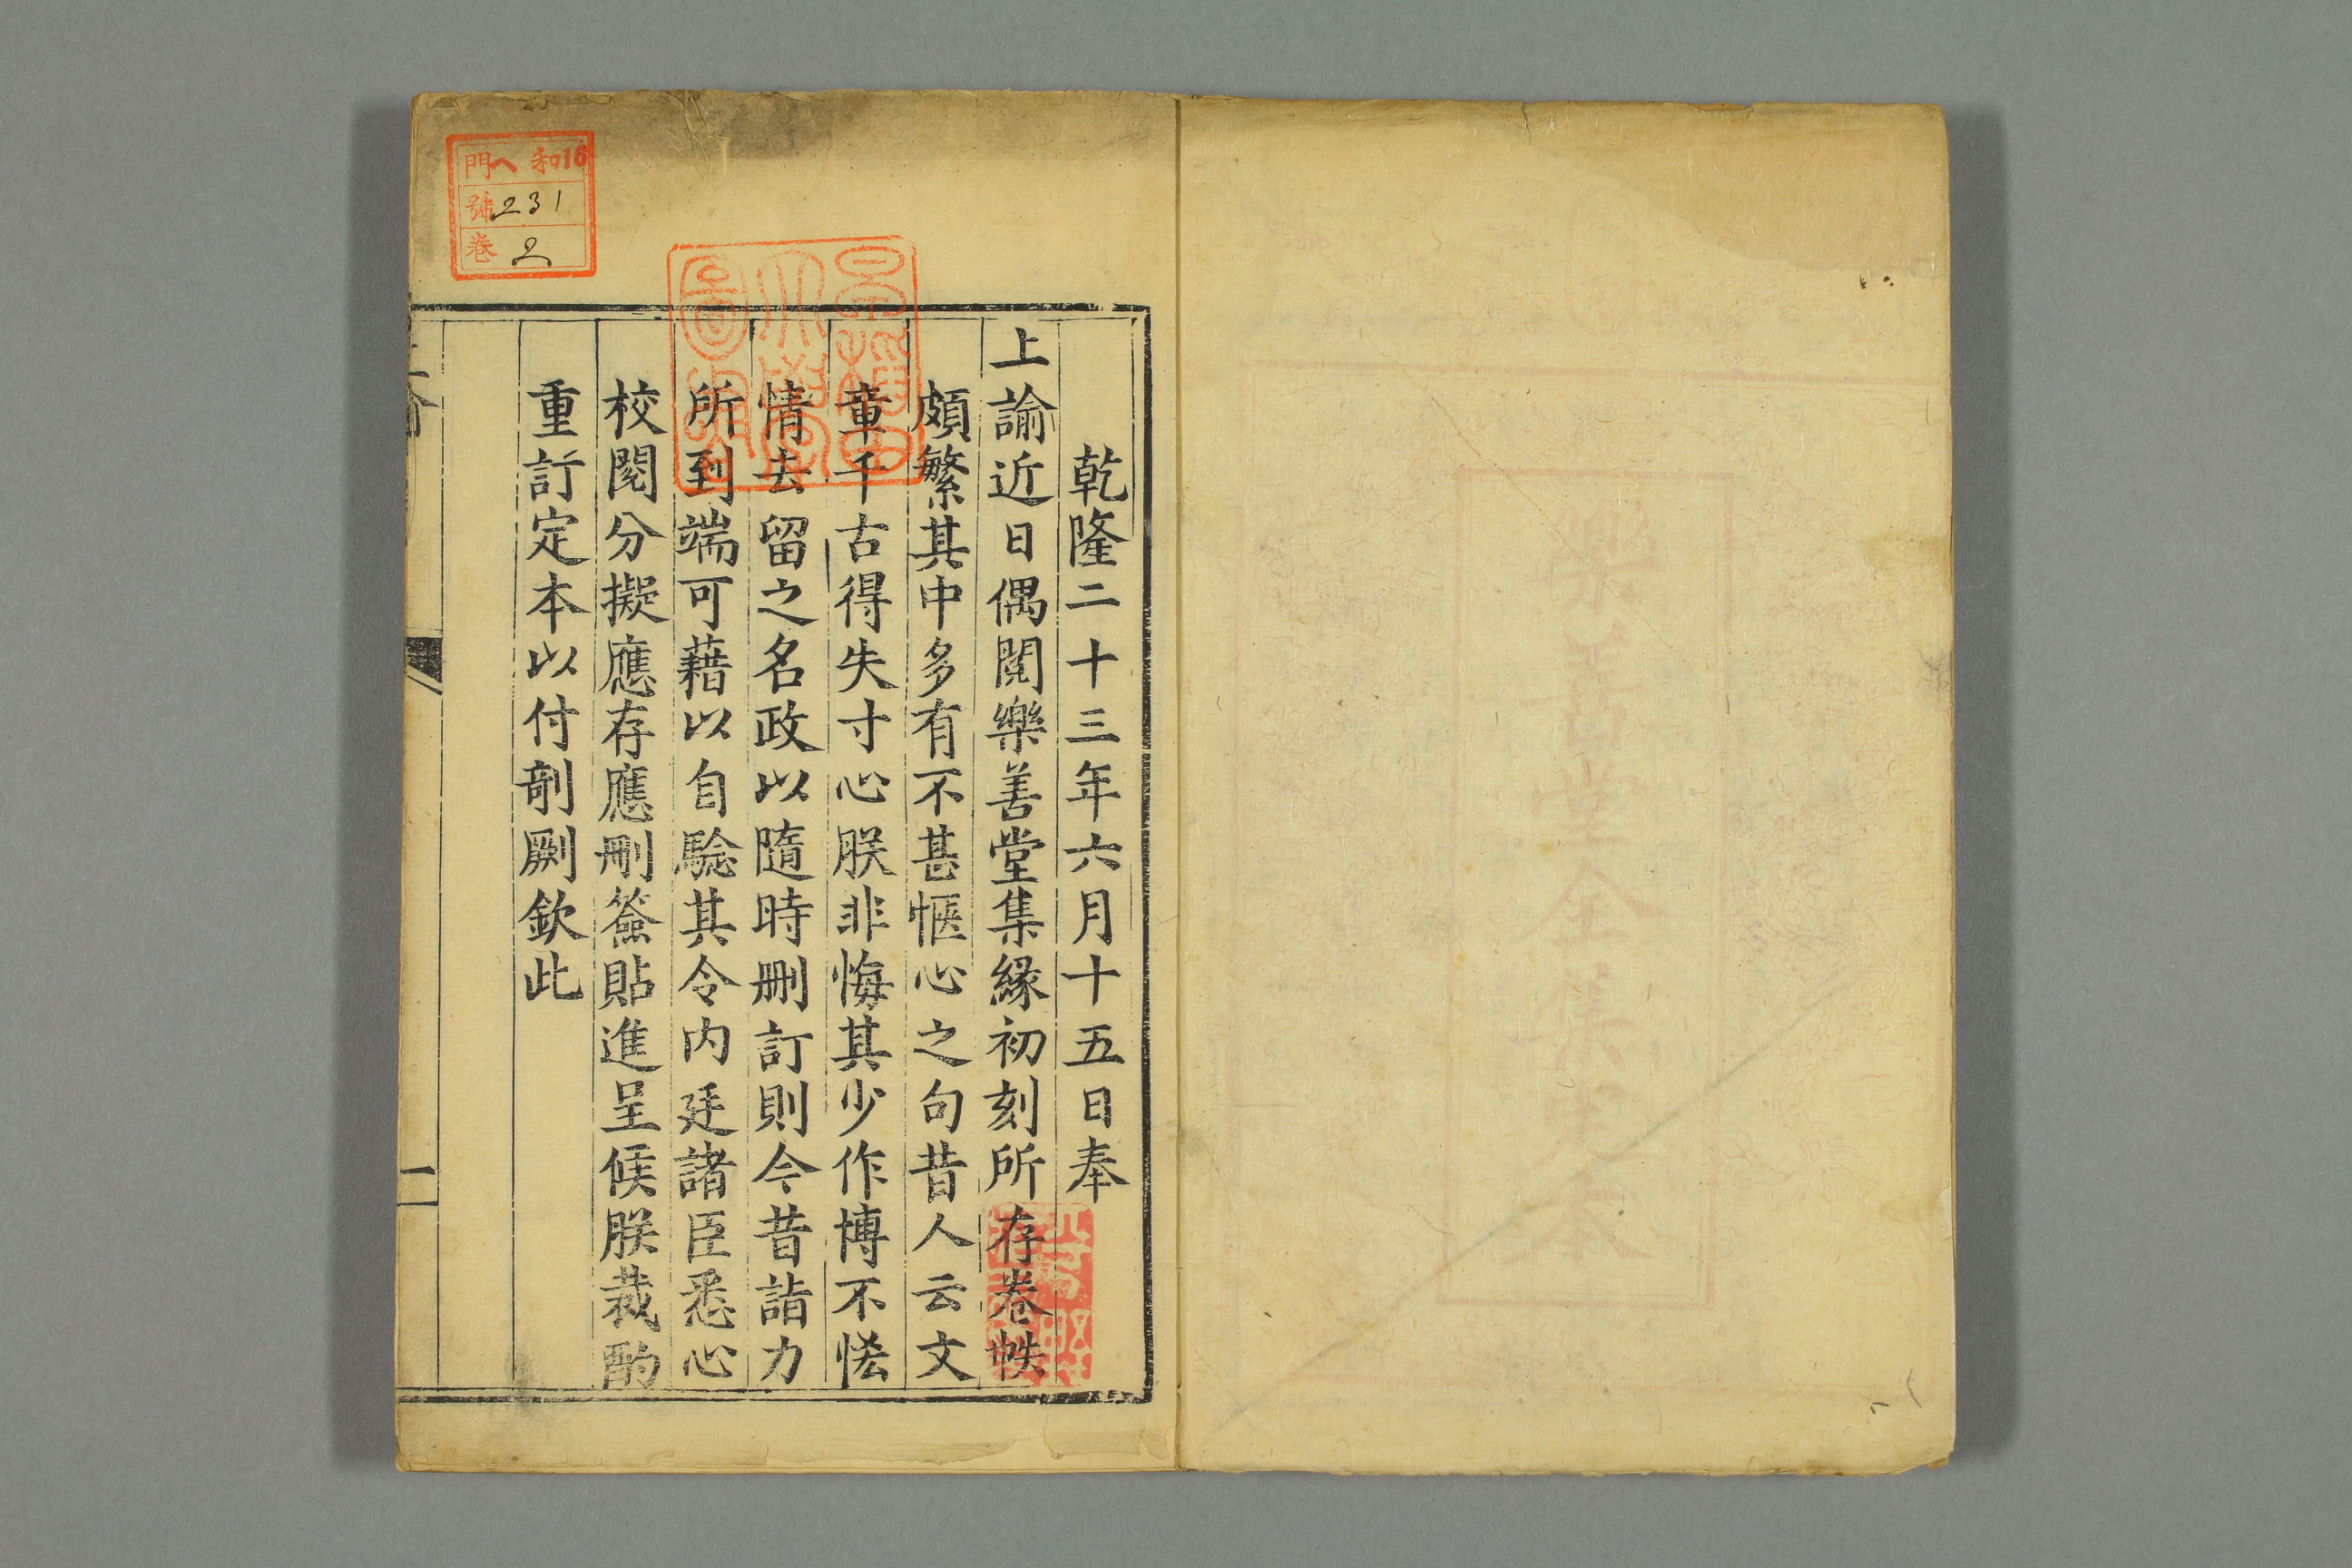 乾隆二十三年六月十五日奉
上諭近日偶閱樂善堂集緣初刻所存卷帙
頗繁其中多有不甚愜心之句昔人云文
章千古得失寸心朕非悔其少作博不恡
情去留之名政以隨時删訂則今昔詣力
所到端可藉以自驗其令内廷諸臣悉心
校閱分擬應存應刪簽貼進呈候朕裁酌
重訂定本以付剞劂欽此
一
門 ヘ 和16
號 231
卷 2
早稲田
大學
圖書
樂善堂全集定本